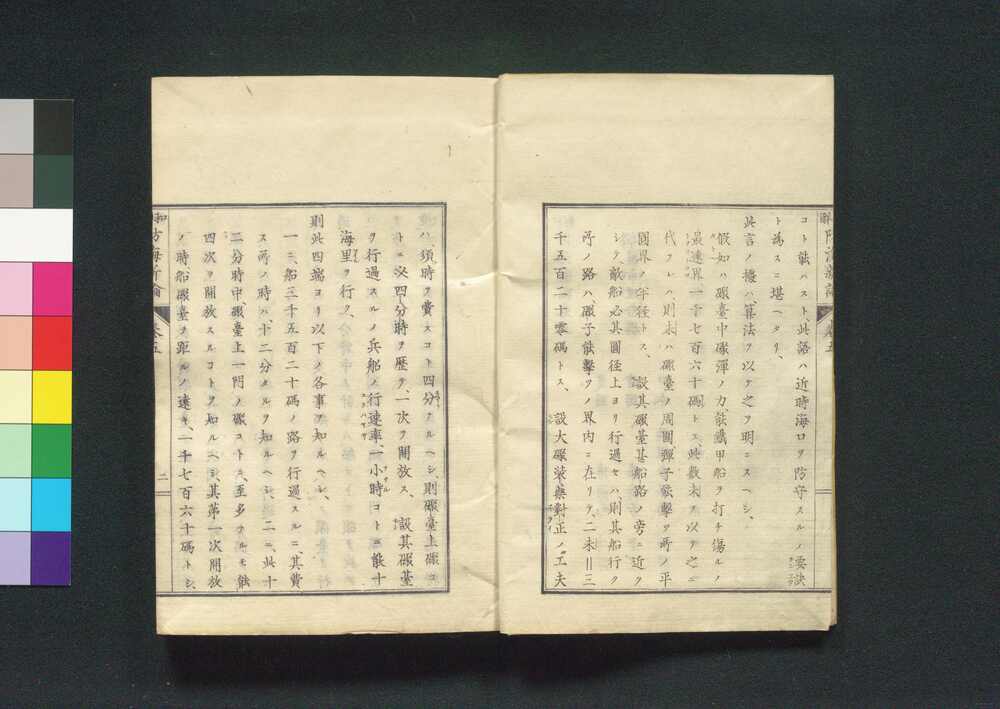 コト能ハスト、此語ハ近時海口ヲ防守スルノ要訣
ト為スニ堪ヘタリ、
此言ノ據ハ、算法ヲ以テ之ヲ明ニスヘシ、
假如ハ礟臺中礟彈ノ力能鐵甲船ヲ打チ傷ルノ
最遠界一千七百六十碼トス、此數未ヲ以テ之ニ
代フレハ、則未ハ礟臺ノ周圍彈子能擊ツ所ノ平
圓界ノ半徑トス、設其礟臺甚船路ノ旁ニ近ク
シテ敵船必其圓徑上ヨリ行過セハ、則其船行ク
所ノ路ハ、礟子能擊ツノ界內ニ在リテ、二未＝三
千五百二十零碼トス、設大礟裝藥對正ノ工夫
ハ、須時ヲ費スコト四分ナルヘシ、則礟臺上礟コ
トニ必四分時ヲ歷テ、一次ヲ開放ス、設其礟臺
ヲ行過スルノ兵船ノ行速率、一小時コトニ能十
海里ヲ行ク、
則此四端ヨリ以下ノ各事ヲ知ルヘシ、
一ニ、船三千五百二十碼ノ路ヲ行過スルニ、其費
ス所ノ時ハ、十二分ナルヲ知ルヘシ、二ニ、此十
二分時中、礟臺上一門ノ礟コトニ、至多ナルモ能
四次ヲ開放スルコトヲ知ルヘシ、其第一次開放
ノ時船礟臺ヲ距ルノ遠キ、一千七百六十碼トシ、
防海新論
卷五
二